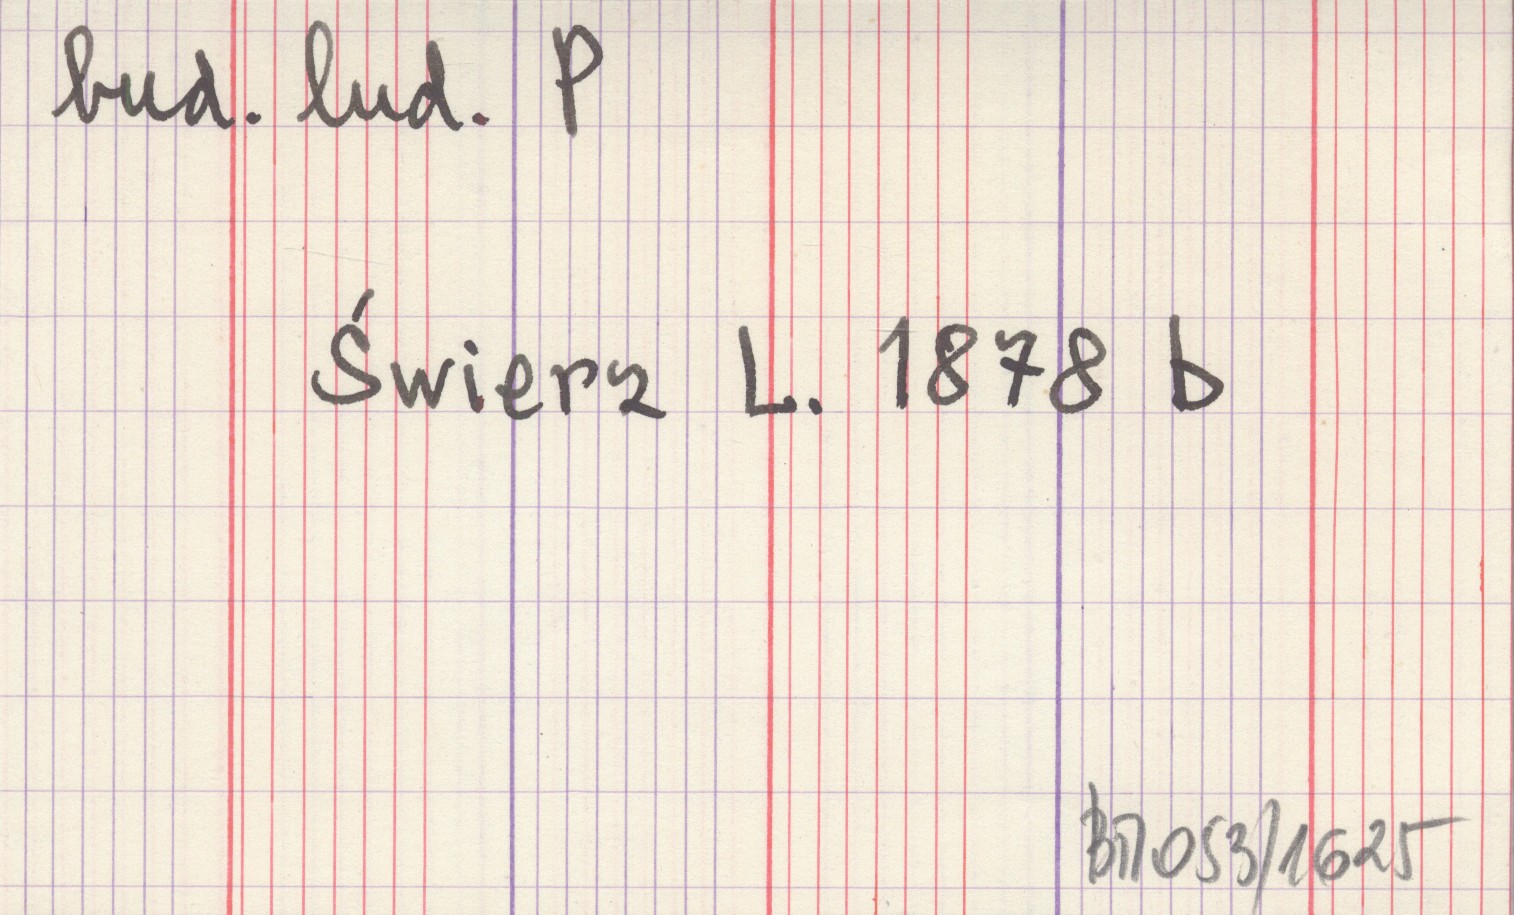 bud. lud. P
Świerz L. 1878 b
BП.053/1625